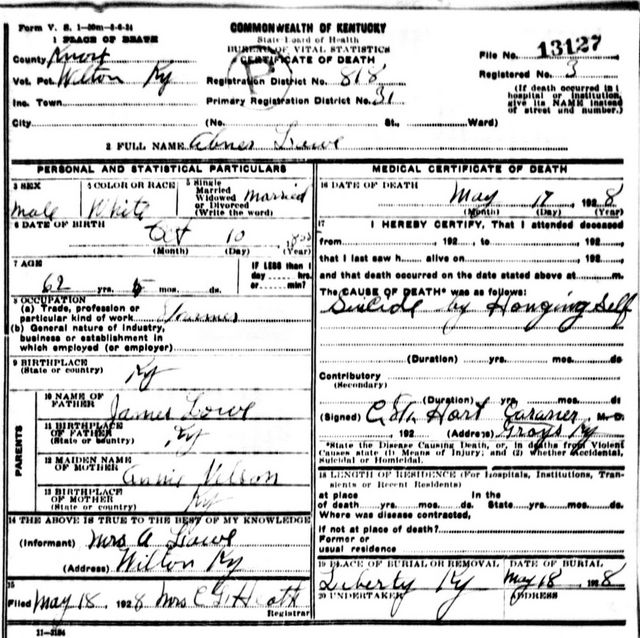 Form V. S. 1-50m-5-6-24
COMMONWEALTH OF KENTUCKY
State Board of Health
BUREAU OF VITAL STATISTICS
CERTIFICATE OF DEATH
1 PLACE OF DEATH
County Knox
Vot. Pct. Wilton Ky
Inc. Town
City (No. St., Ward)
Registration District No. 818
Primary Registration District No. 31
File No. 13127
Registered No. 3
(If death occurred in a
hospital or institution,
give its NAME instead
of street and number.)
2 FULL NAME Abner Lowe
PERSONAL AND STATISTICAL PARTICULARS
3 SEX
male
4 COLOR OR RACE
White
5 Single
Married
Widowed
or Divorced
(Write the word)
Married
6 DATE OF BIRTH
Oct 10
(Month) (Day) (Year)
7 AGE
62 yrs. 5 mos. ds.
IF LESS than 1
day hrs.
or min?
8 OCCUPATION
(a) Trade, profession or
particular kind of work Farmer
(b) General nature of industry,
business or establishment in
which employed (or employer)
9 BIRTHPLACE
(State or country)
Ky
PARENTS
10 NAME OF
FATHER
James Lowe
11 BIRTHPLACE
OF FATHER
(State or country)
Ky
12 MAIDEN NAME
OF MOTHER
Annie
13 BIRTHPLACE
OF MOTHER
(State or country)
Ky
14 THE ABOVE IS TRUE TO THE BEST OF MY KNOWLEDGE
(Informant) Mrs A Lowe
(Address) Wilton Ky
15
Filed May 18 1928 Mrs C G Heath
Registrar
11-3184
MEDICAL CERTIFICATE OF DEATH
16 DATE OF DEATH
May 17 1928
(Month) (Day) (Year)
17
I HEREBY CERTIFY, That I attended deceased
from 192 , to 192
that I last saw h alive on 192
and that death occurred on the date stated above at m.
The CAUSE OF DEATH* was as follows:
Suicide by Hanging Self
(Duration) yrs. mos. ds
Contributory
(Secondary)
(Duration) yrs. mos. ds
(Signed) Hart M. D.
192 (Address) Grays Ky
*State the Disease Causing Death, or, in deaths from Violent
Causes state (1) Means of Injury; and (2) whether Accidental,
Suicidal or Homicidal.
18 LENGTH OF RESIDENCE (For Hospitals, Institutions, Tran-
sients or Recent Residents)
at place In the
of death yrs. mos. ds. State yrs. mos. ds.
Where was disease contracted,
if not at place of death?
Former or
usual residence
19 PLACE OF BURIAL OR REMOVAL
Liberty Ky
DATE OF BURIAL
May 18 1928
20 UNDERTAKER
ADDRESS